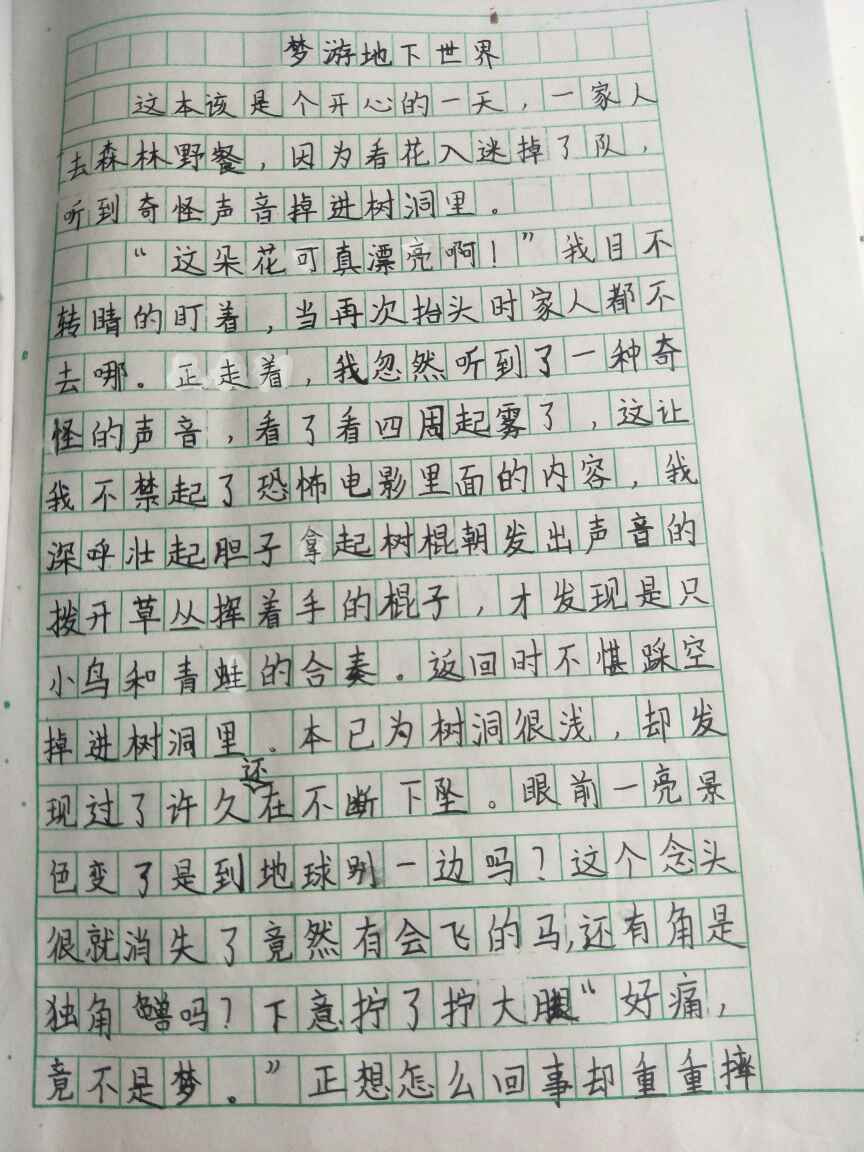 梦游地下世界
这本该是个开心的一天，一家人
去森林野餐，因为看花入迷掉了队，
听到奇怪声音掉进树洞里。
“这朵花可真漂亮啊！”我目不
转睛的盯着，当再次抬头时家人都不
去哪。正走着，我忽然听到了一种奇
怪的声音，看了看四周起雾了，这让
我不禁起了恐怖电影里面的内容，我
深呼壮起胆子拿起树棍朝发出声音的
拨开草丛挥着手的棍子，才发现是只
小鸟和青蛙的合奏。返回时不慎踩空
掉进树洞里。本已为树洞很浅，却发
现过了许久还在不断下坠。眼前一亮景
色变了是到地球别一边吗？这个念头
很就消失了竟然有会飞的马,还有角是
独角兽吗？下意拧了拧大腿“好痛，
竟不是梦。”正想怎么回事却重重摔